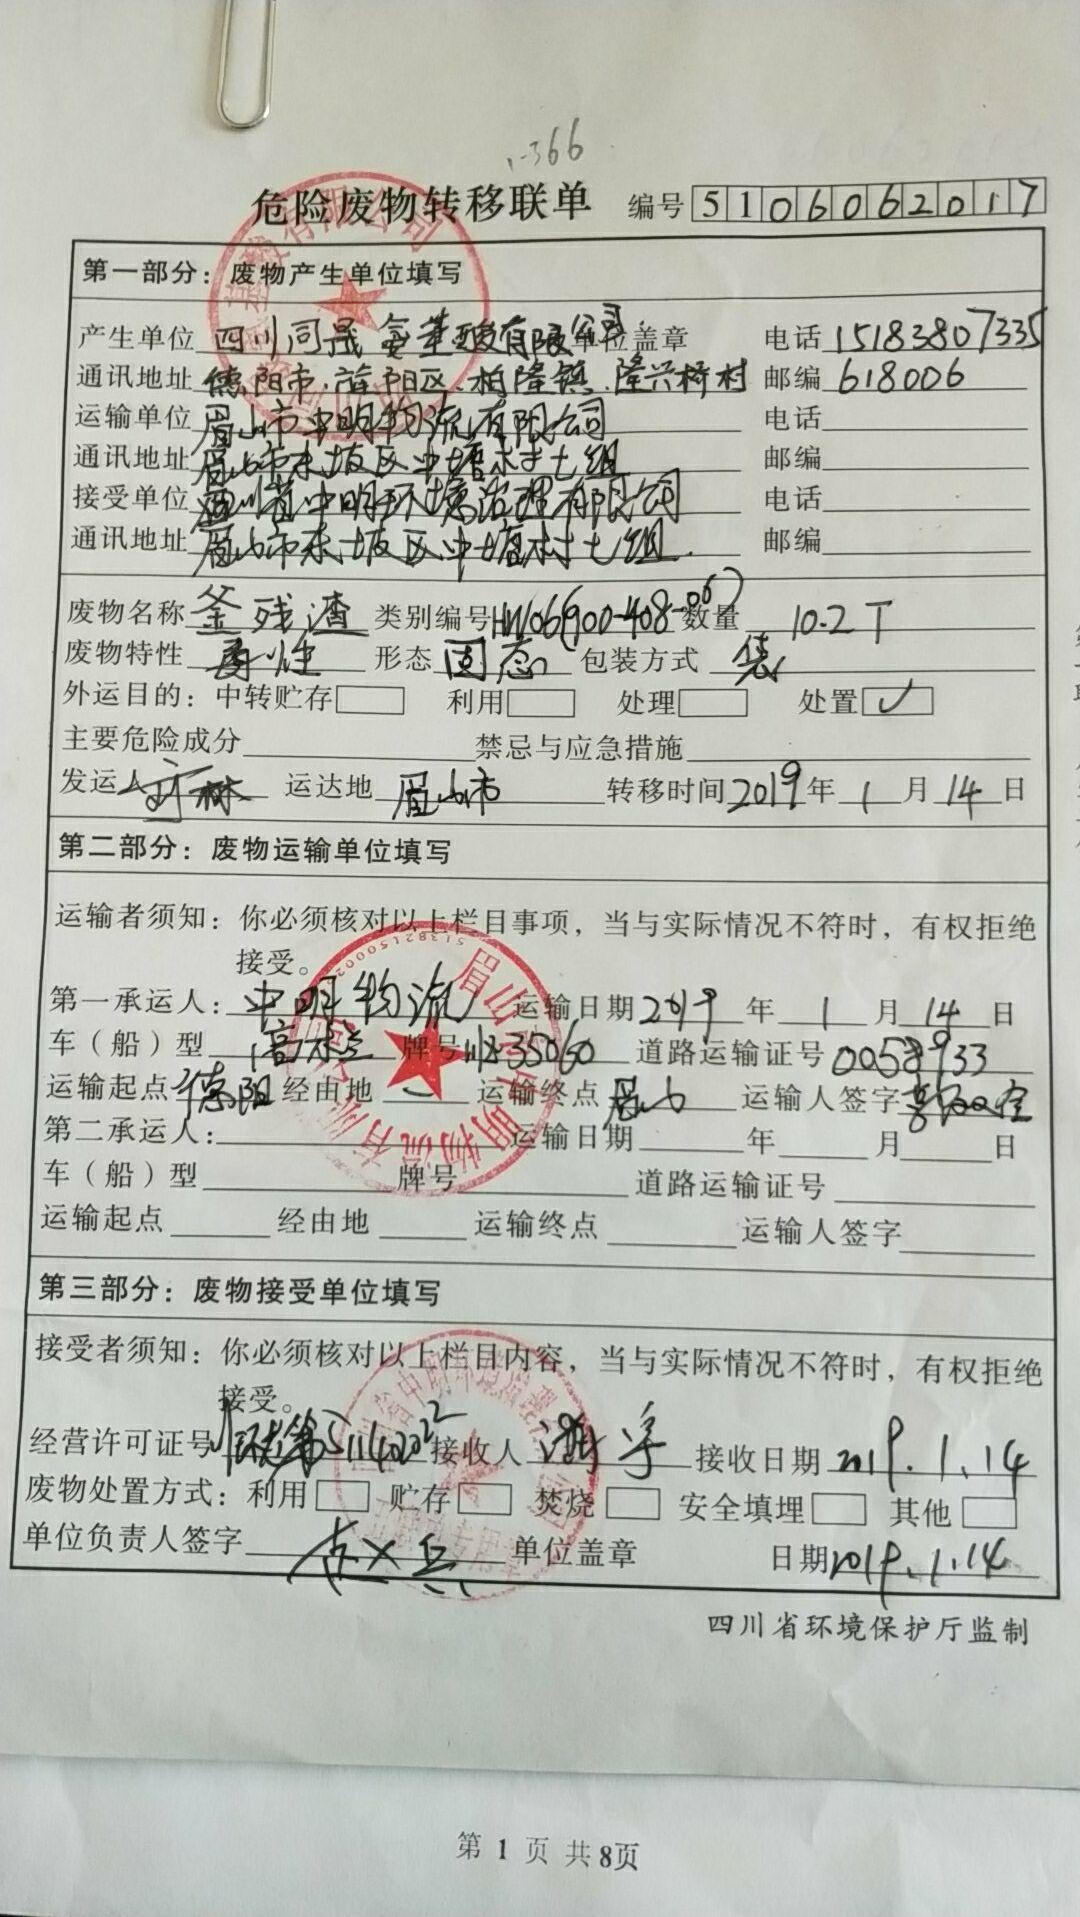 1-366
危险废物转移联单 编号 5106062017
第一部分：废物产生单位填写
产生单位 四川同晟氨基酸有限公司 单位盖章 电话 15183807335
通讯地址 德阳市旌阳区柏隆镇隆兴桥村 邮编 618006
运输单位 眉山市中明物流有限公司 电话
通讯地址 眉山市东坡区中塘村七组 邮编
接受单位 四川省中明环境治理有限公司 电话
通讯地址 眉山市东坡区中塘村七组 邮编
废物名称 釜残渣 类别编号 HW06(900-408-06) 数量 10.2T
废物特性 毒性 形态 固态 包装方式 袋
外运目的：中转贮存 利用 处理 处置 ✓
主要危险成分 禁忌与应急措施
发运人 运达地 眉山市 转移时间 2019年1月14日
第二部分：废物运输单位填写
运输者须知：你必须核对以上栏目事项，当与实际情况不符时，有权拒绝
接受。
第一承运人：中明物流 运输日期 2019年1月14日
车（船）型 牌号 35060 道路运输证号 0058933
运输起点 德阳 经由地 运输终点 眉山 运输人签字
第二承运人： 运输日期 年 月 日
车（船）型 牌号 道路运输证号
运输起点 经由地 运输终点 运输人签字
第三部分：废物接受单位填写
接受者须知：你必须核对以上栏目内容，当与实际情况不符时，有权拒绝
接受。
经营许可证号 川环危第511402022 接收人 接收日期 2019.1.14
废物处置方式：利用 贮存 焚烧 安全填埋 其他
单位负责人签字 单位盖章 日期 2019.1.14
四川省环境保护厅监制
第 1 页 共8页